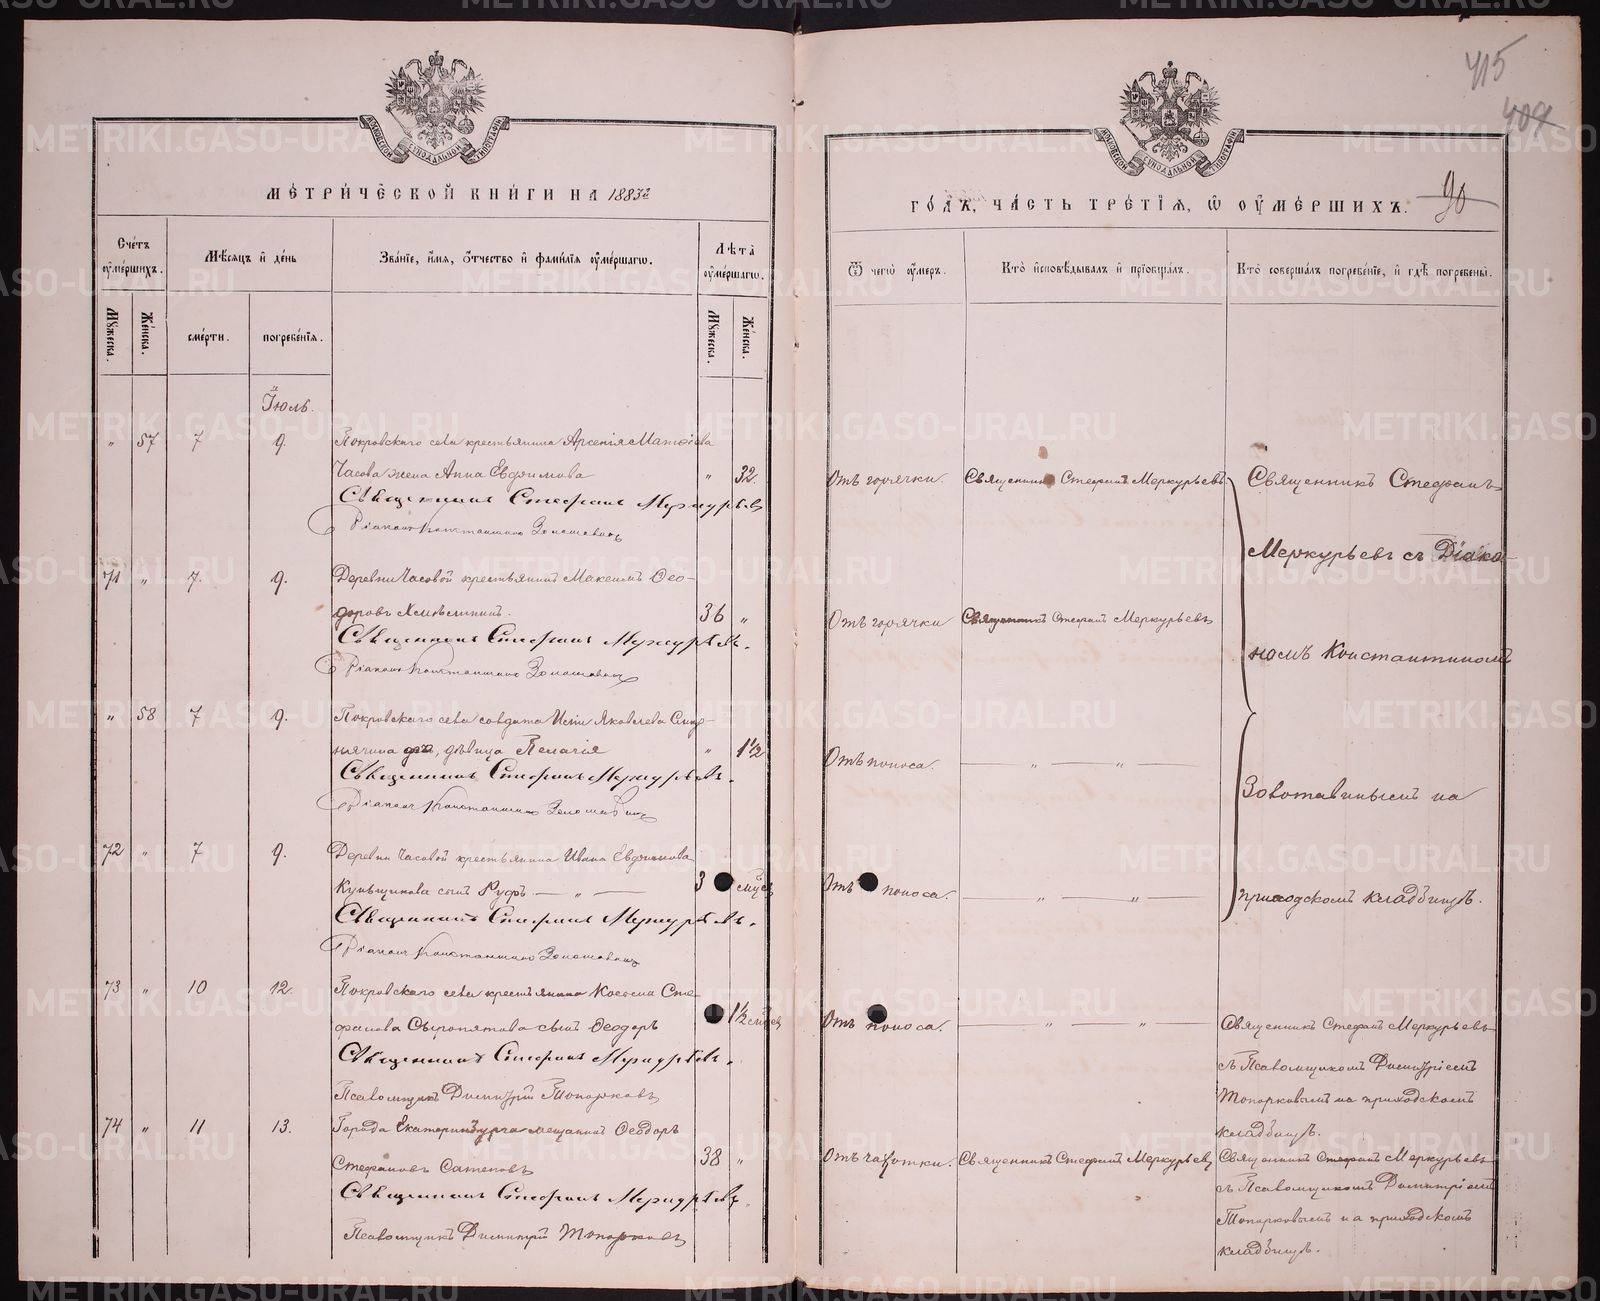 МЕТРИЧЕСКОЙ КНИГИ НА 1883й
Счетъ оумершихъ.
Мѣсяцъ и день
Званіе, имя, отчество и фамилія оумершагѡ.
Лѣта оумершагѡ.
Мужеска.
Женска.
смерти.
погребенія.
Мужеска.
Женска.
Іюль.
" 57 7 9. Покровскаго села крестьянина Арсенія Матѳіева
Часова жена Анна Евфимова " 32.
Священникъ Стефанъ Меркурьевъ
Діаконъ Константинъ Золотавинъ
71 " 7. 9. Деревни Часовой крестьянинъ Максимъ Ѳео-
доровъ 36 "
Священникъ Стефанъ Меркурьевъ.
Діаконъ Константинъ Золотавинъ
" 58 7 9. Покровскаго села солдата Яковлева
дѣвица Пелагія " 1 1/2
Священникъ Стефанъ Меркурьевъ.
Діаконъ Константинъ Золотавинъ
72 " 7 9. Деревни Часовой крестьянина Ивана Евфимова
сынъ Руфъ. — " — 3 мѣс
Священникъ Стефанъ Меркурьевъ.
Діаконъ Константинъ Золотавинъ
73 " 10 12. Покровскаго села крестьянина Косьмы Сте-
фанова Сыропятова сынъ Ѳеодоръ 1 1/2 мѣс
Священникъ Стефанъ Меркурьевъ.
Псаломщикъ Димитрій Топорковъ
74 " 11 13. Города Екатеринбурга мещанинъ Ѳеодоръ
Стефановъ 38 "
Священникъ Стефанъ Меркурьевъ.
Псаломщикъ Димитрій Топорковъ
415
407
ГОДЪ, ЧАСТЬ ТРЕТІЯ, Ѡ ОУМЕРШИХЪ. 90
Ѿ чегѡ оумеръ.
Кто исповѣдывалъ и пріобщалъ.
Кто совершалъ погребеніе, и гдѣ погребены.
Отъ горячки. Священникъ Стефанъ Меркурьевъ Священникъ Стефанъ
Меркурьевъ съ Діако-
Отъ горячки Священникъ Стефанъ Меркурьевъ
номъ Константиномъ
Отъ поноса. — " — " —
Золотавинымъ на
Отъ поноса. — " — " — приходскомъ кладбищѣ.
Отъ поноса. — " — " — Священникъ Стефанъ Меркурьевъ
съ Псаломщикомъ Димитріемъ
Топорковымъ на приходскомъ
кладбищѣ.
Отъ чахотки. Священникъ Стефанъ Меркурьевъ Священникъ Стефанъ Меркурьевъ
съ Псаломщикомъ Димитріемъ
Топорковымъ на приходскомъ
кладбищѣ.
METRIKI.GASO-URAL.RU